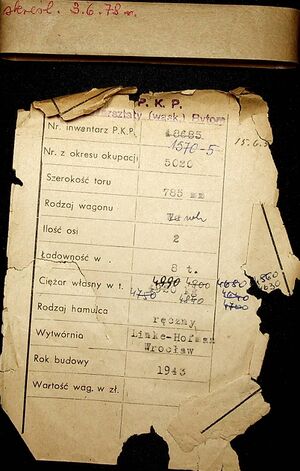 skreśl. 3.6.78 r.
P. K. P.
Warsztaty (wąsk.) Bytom
Nr. inwentarz P.K.P. 18685
1570-5
Nr. z okresu okupacji 5020
Szerokość toru 785 mm
Rodzaj wagonu
Ilość osi 2
Ładowność w . 8 t.
Ciężar własny w t. 4990 4900 4680
4750 4840 4700
Rodzaj hamulca ręczny
Wytwórnia Linke-Hofman
Wrocław
Rok budowy 1943
Wartość wag. w zł.